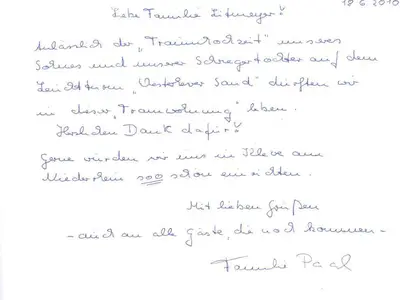 18.6.2010
Liebe Familie Litmeyer!
Anlässlich der „Traumhochzeit" unseres
Sohnes und unserer Schwiegertochter auf dem
Leuchtturm „Westerhever Sand" durften wir
in dieser „Traumwohnung" leben.
Herzlichen Dank dafür!
Gerne würden wir uns in Kleve am
Niederrhein soo schön einrichten.
Mit lieben Grüßen
- auch an alle Gäste, die noch kommen -
Familie Paal